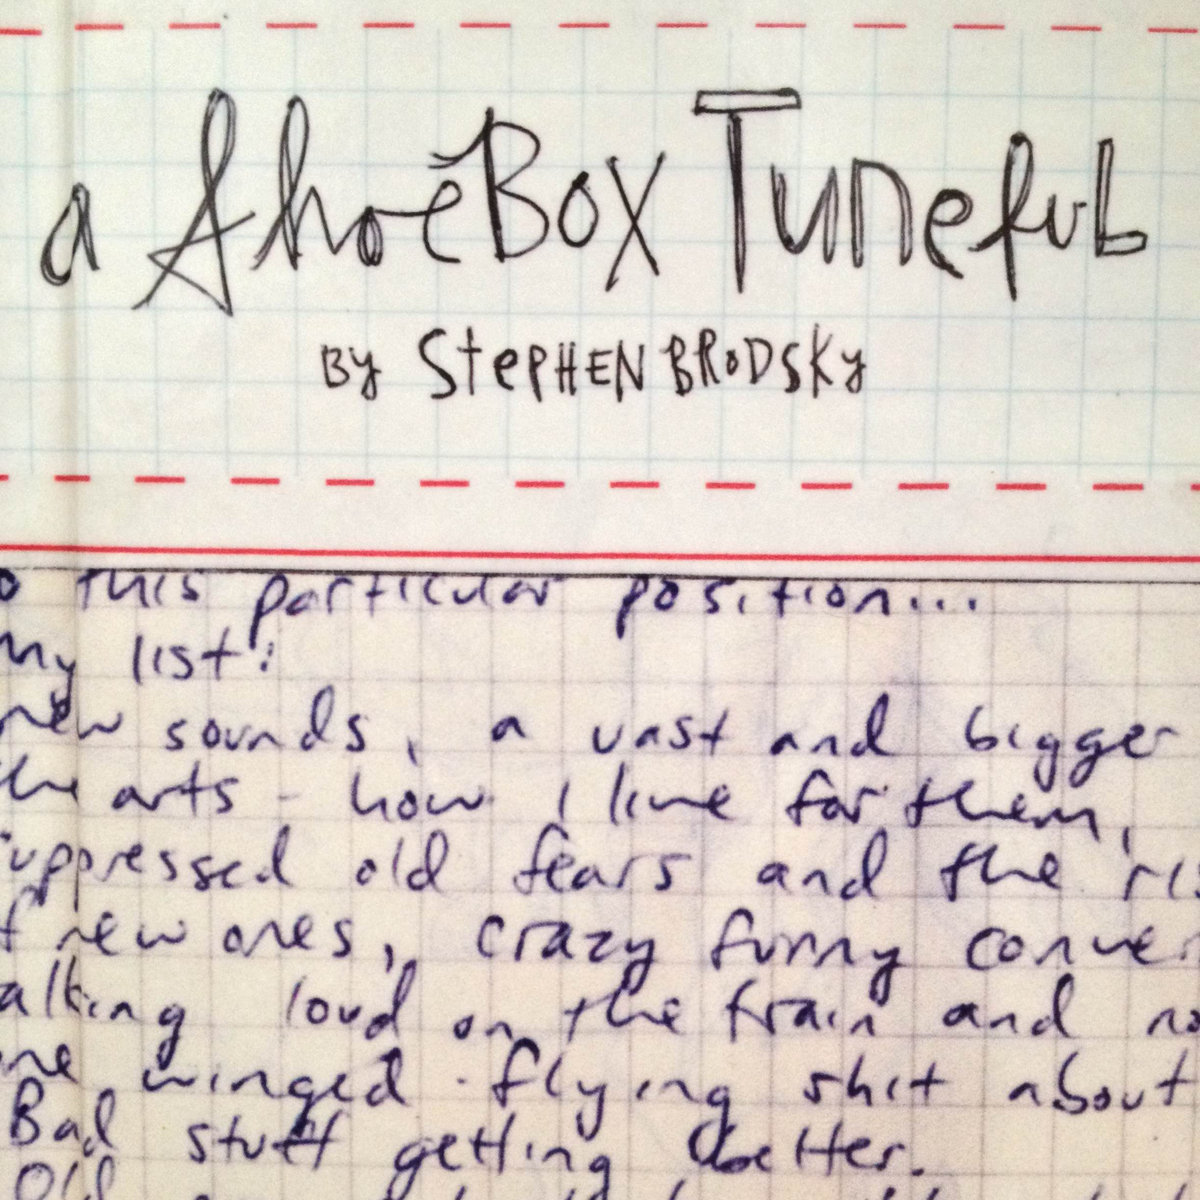 a ShoeBox Tuneful
BY StePHEN BRODSKY
o this particular position...
my list:
new sounds, a vast and bigger
the arts - how I live for them,
uppressed old fears and the ris
f new ones, crazy funny conver
alking loud on the train and no
one winged flying shit about
Bad stuff getting better.
Old